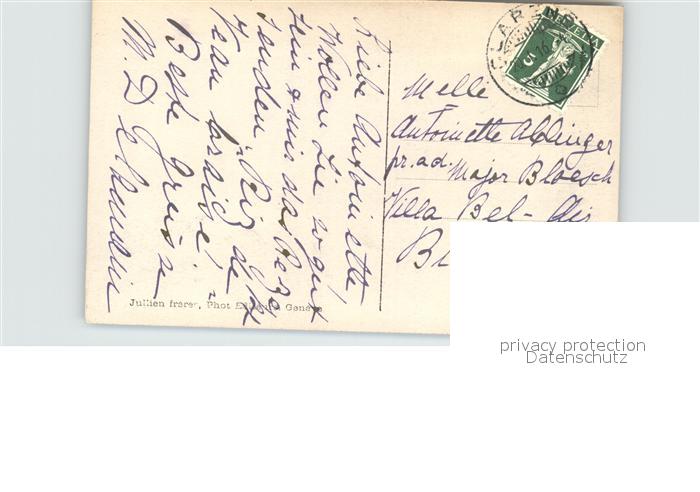 Liebe Antoinette,
Wollen Sie so gut
sein & mir das Beze
senden "Riz de
Veau braisé"
Beste Grüsse
M. D
Melle
Antoinette Ablinger
pr. ad. Major Bloesch
Villa Bel-Air
B
Jullien frères, Phot Genève
HELVETIA
5
CLARENS
privacy protection
Datenschutz